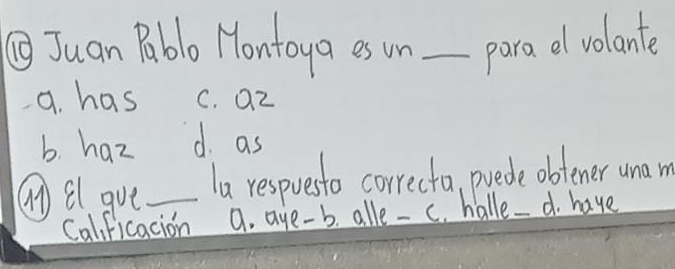 ⑩ Juan Pablo Montoya es un ___ para el volante
a. has c. az
b. haz d. as
⑪ El que ___ la respuesta correcta, puede obtener una m
Calificación a. aye - b. alle - c. halle - d. haye